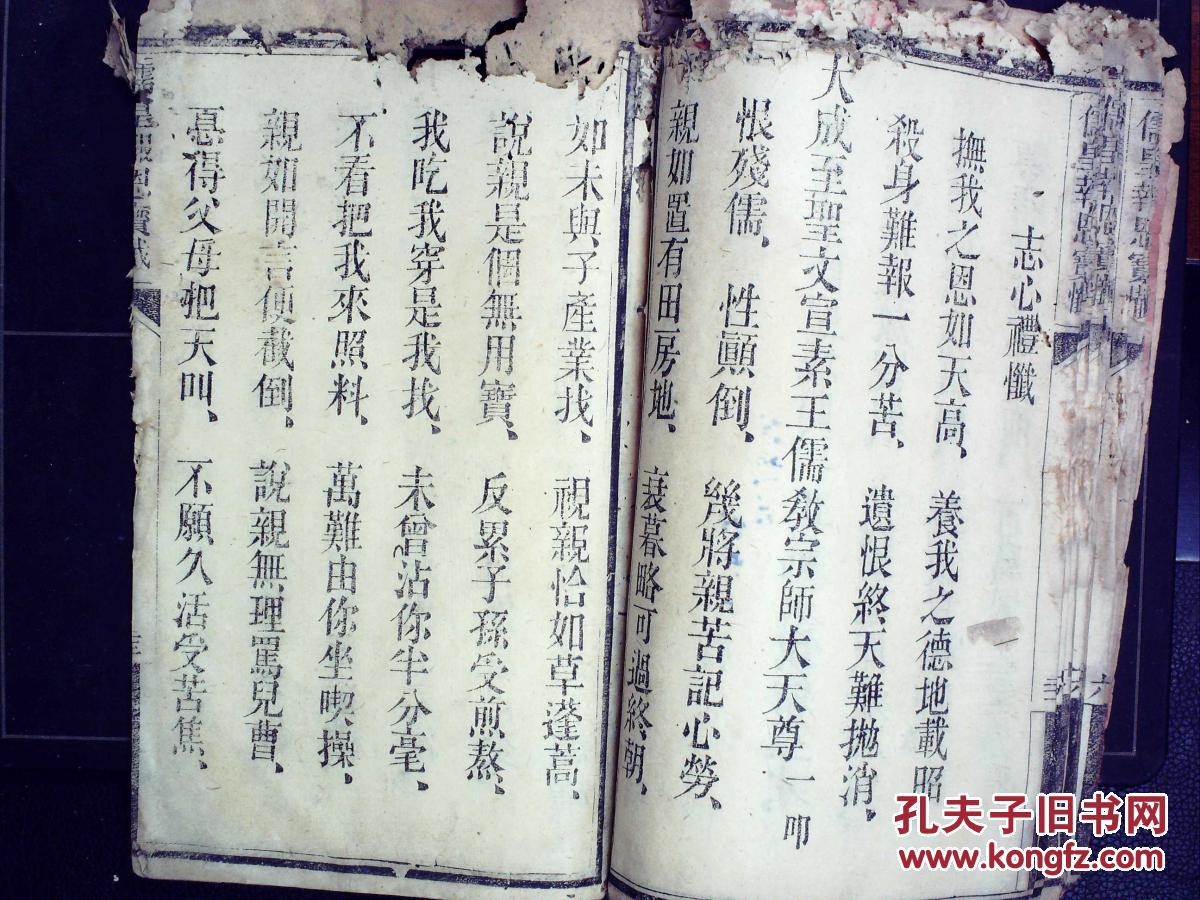 志心禮懺
撫我之恩如天高、養我之德地載昭
殺身難報一分苦、遺恨終天難拋消、
大成至聖文宣素王儒教宗師大天尊一叩
恨殘儒、性顚倒、幾將親苦記心勞、
親如置有田房地、衰暮略可過終朝、
如未與子產業找、視親恰如草蓬蒿、
說親是個無用寶、反累子孫受煎熬、
我吃我穿是我找、未曾沾你半分毫、
不看把我來照料、萬難由你坐喫操、
親如開言便截倒、說親無理罵兒曹、
惪得父母把天叫、不願久活受苦焦、
孔夫子旧书网
www.kongfz.com